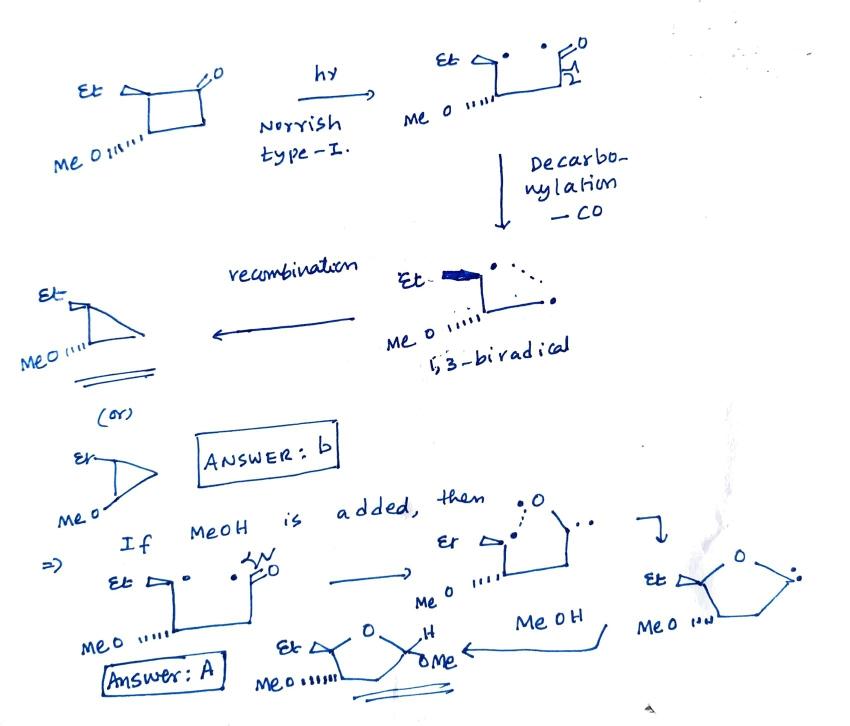 Et
O
MeO
hν
Norrish
type-I.
Et
O
MeO
Decarbo-
nylation
- CO
recombination
Et
MeO
1,3-biradical
Et
MeO
(or)
Et
MeO
ANSWER: b
⇒ If MeOH is added, then
Et
O
MeO
O
Et
MeO
O
Et
MeO
MeOH
O
H
Et
OMe
MeO
Answer: A